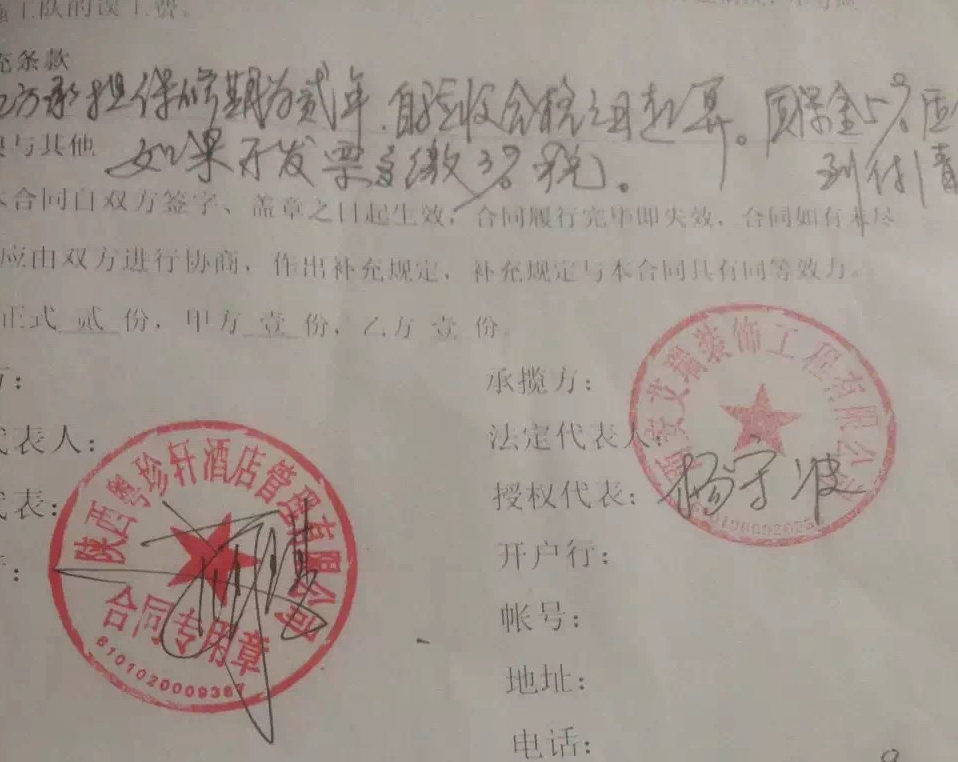 施工队的误工费。
充条款
乙方承担保修期为贰年,自验收合格之日起算。质保金5%
到付清
与其他 如果开发票另缴3%税。
本合同自双方签字、盖章之日起生效,合同履行完毕即失效,合同如有未尽
应由双方进行协商,作出补充规定,补充规定与本合同具有同等效力。
正式 贰 份,甲方 壹 份,乙方 壹 份。
方:
承揽方:
代表人:
法定代表人:
代表:
授权代表:
杨守波
开户行:
帐号:
地址:
电话:
陕西粤珍轩酒店管理有限公司
合同专用章
6101020009387
西安艾瑞装饰工程有限公司